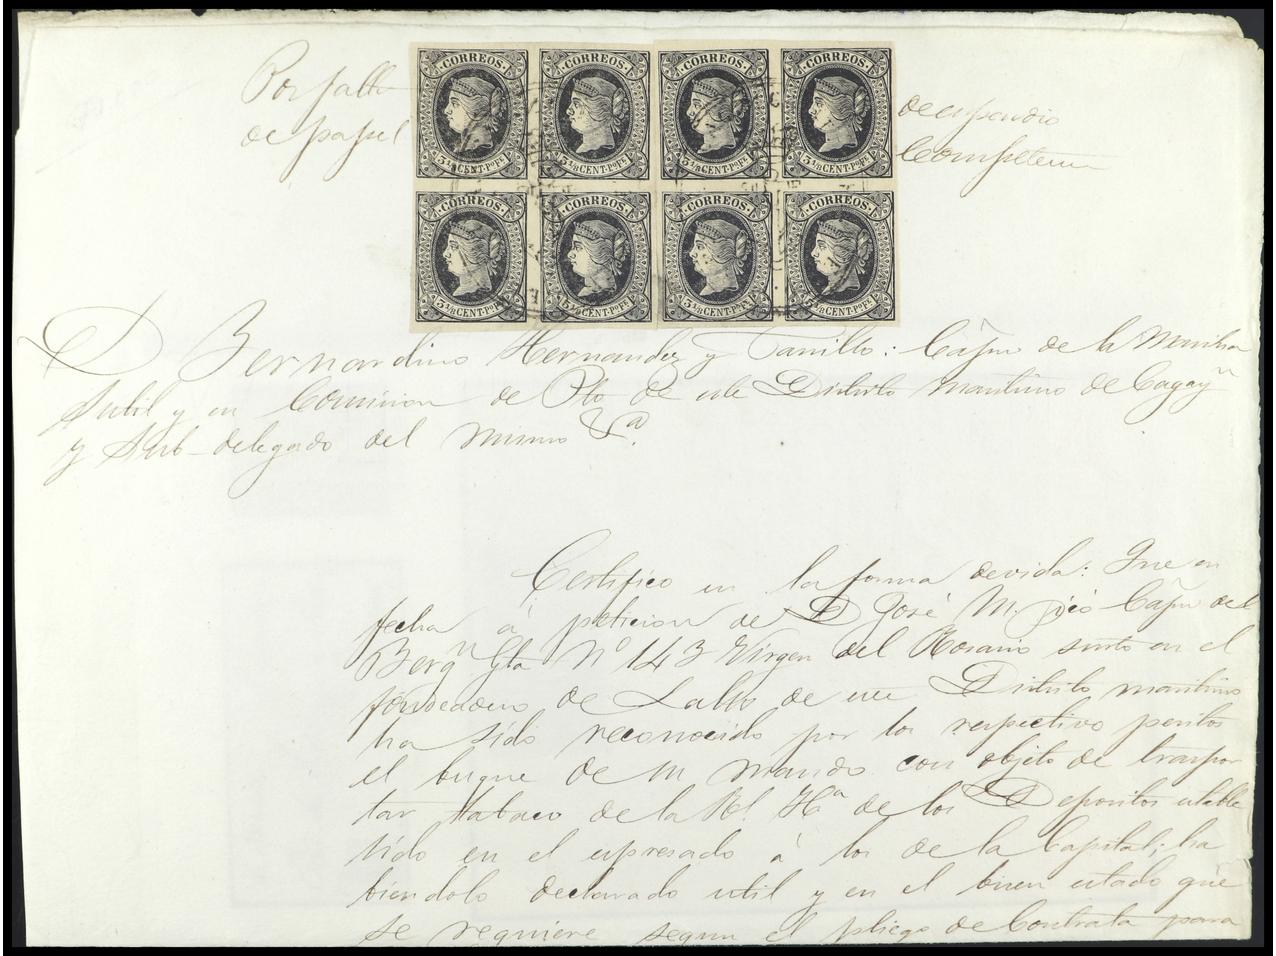 Por falta de espendio
de papel Competente
CORREOS CORREOS CORREOS CORREOS
3 1/8 CENT. Po Fe. 3 1/8 CENT. Po Fe. 3 1/8 CENT. Po Fe. 3 1/8 CENT. Po Fe.
CORREOS CORREOS CORREOS CORREOS
3 1/8 CENT. Po Fe. 3 1/8 CENT. Po Fe. 3 1/8 CENT. Po Fe. 3 1/8 CENT. Po Fe.
D Bernardino Hernandez y : de la Marina
Sutil y en Comision de Pto de este Distrito maritimo de Cagayn
y Sub-delegado del mismo &a.
Certifico en la forma devida: Que en
fecha á peticion de D José M. Capn del
Bergn Gta No 143 Virgen del Rosario surto en el
fondeadero de de este Distrito maritimo
ha sido reconocido por los respectivo peritos
el buque de su mando con objeto de traspor
tar tabaco de la Rl. Ha de los Depositos estable
sido en el espresado á los de la Capital; ha
biendolo declarado util y en el buen estado que
se requiere segun el pliego de Contrata para